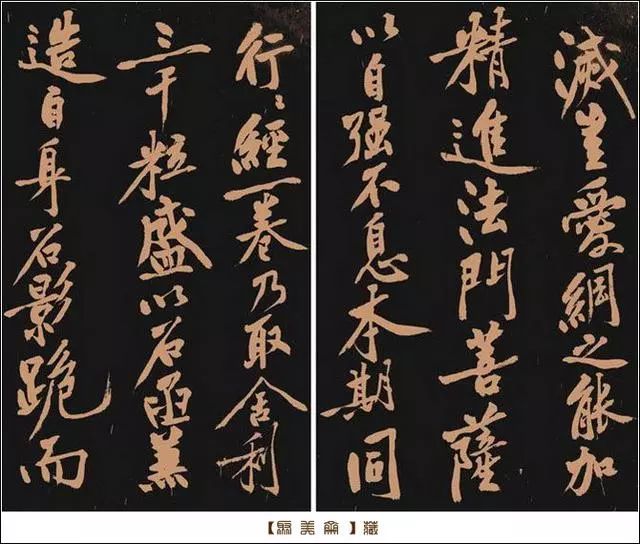 滅生愛網之能加
精進法門菩薩
以自强不息本期同
行〻經一卷乃取舍利
三千粒盛以石函兼
造自身石影跪而